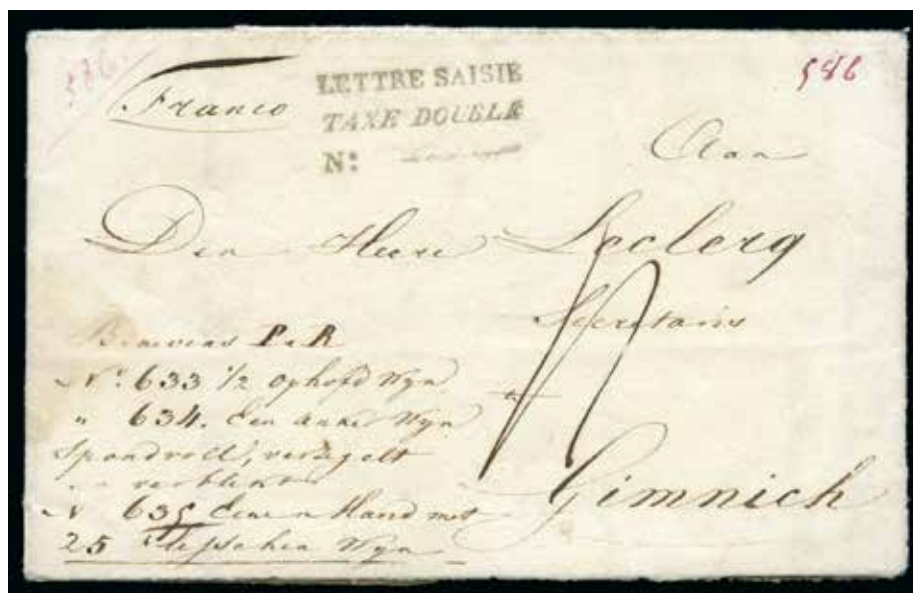 586.
586
Franco
LETTRE SAISIE
TAXE DOUBLE
N:
Aan
Den Heere Leclerq
Secretaris
te
Gimnich
P. R
N: 633 1/2 Ophofd Wyn
" 634. Een anker Wyn
verzegelt
N 635 Eene Mand met
25 Wyn